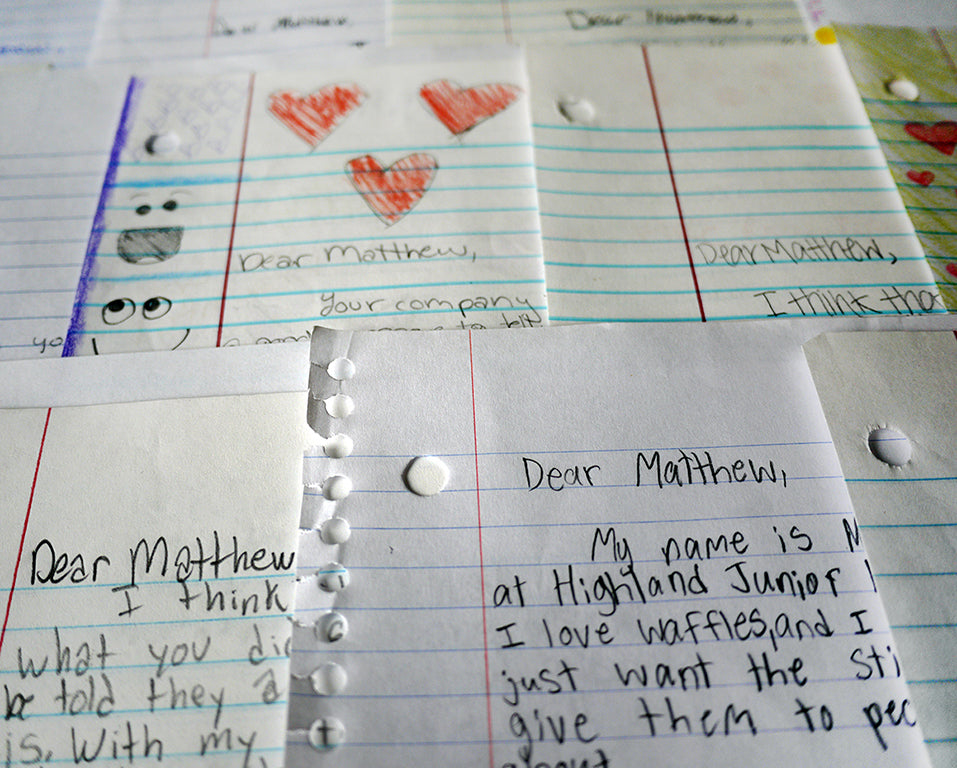 Dear Matthew,
Dear
Dear Matthew,
Your company
Dear Matthew,
I think
yo
Dear Matthew
I think
what you di
be told they a
is. With my
Dear Matthew,
My name is M
at Highland Junior
I love waffles, and I
just want the sti
give them to peo
about